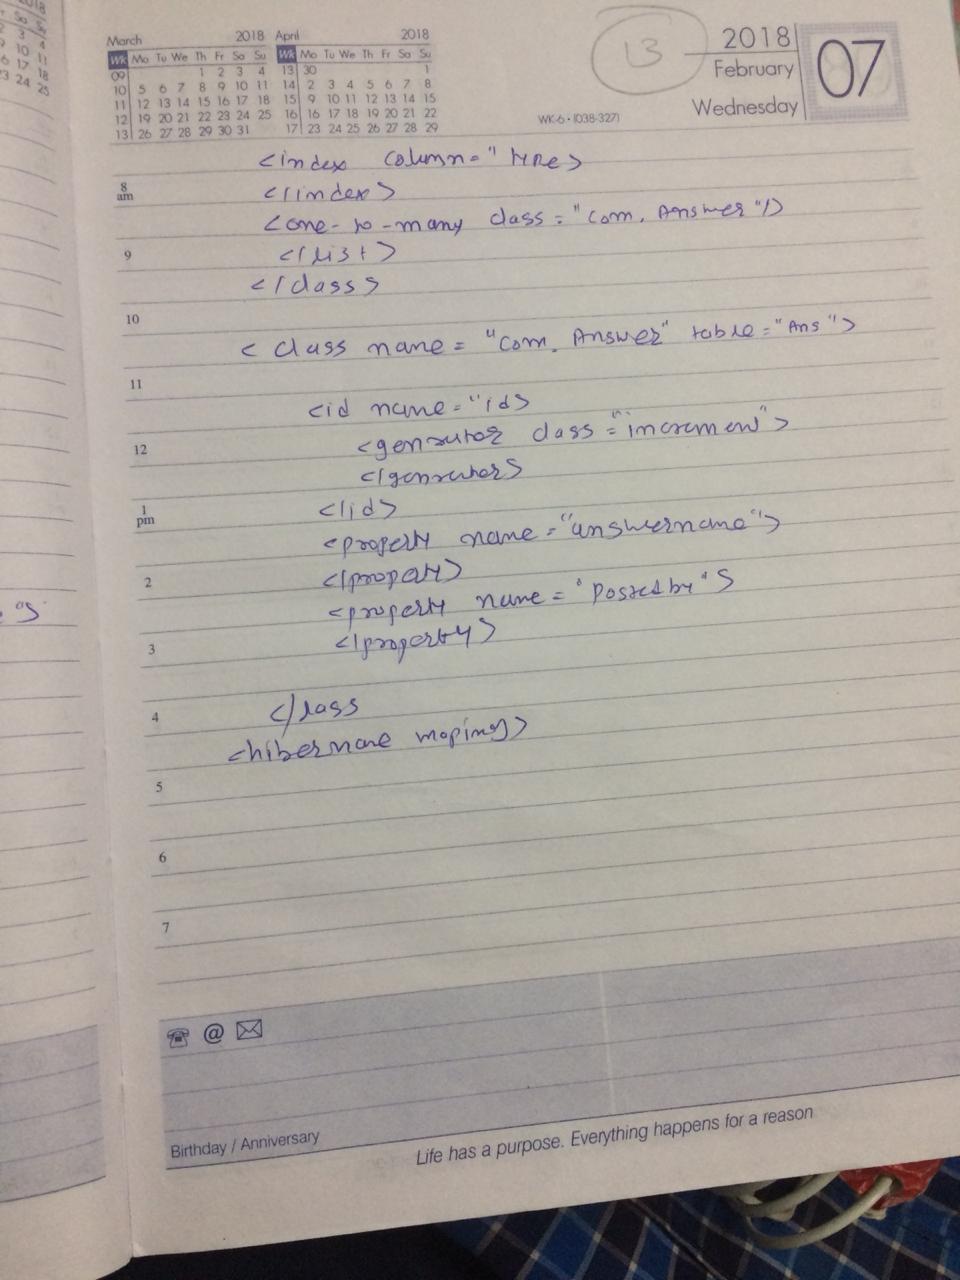 March 2018
Wk Mo Tu We Th Fr Sa Su
09 1 2 3 4
10 5 6 7 8 9 10 11
11 12 13 14 15 16 17 18
12 19 20 21 22 23 24 25
13 26 27 28 29 30 31
April 2018
Wk Mo Tu We Th Fr Sa Su
13 30 1
14 2 3 4 5 6 7 8
15 9 10 11 12 13 14 15
16 16 17 18 19 20 21 22
17 23 24 25 26 27 28 29
13
2018
February
Wednesday
07
WK-6 • (038-327)
<index column="type>
8 am </index>
<one-to-many class="com. Answer"/>
9 </list>
</class>
10
<class name="com. Answer" table="Ans">
11
<id name="id>
12 <genrator class="increment">
</genrator>
1 pm </id>
<property name="answername">
2 </propety>
<property name="Postedby">
3 </property>
4 </lass
<hibernate maping>
5
6
7
@
Birthday / Anniversary
Life has a purpose. Everything happens for a reason